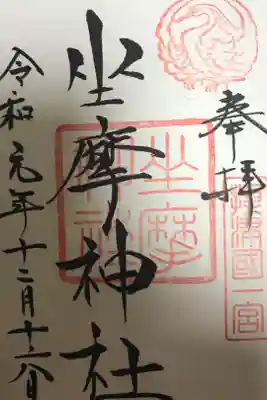 奉拝
攝津國一宮
坐摩神社
坐摩
神社
令和元年十二月十六日